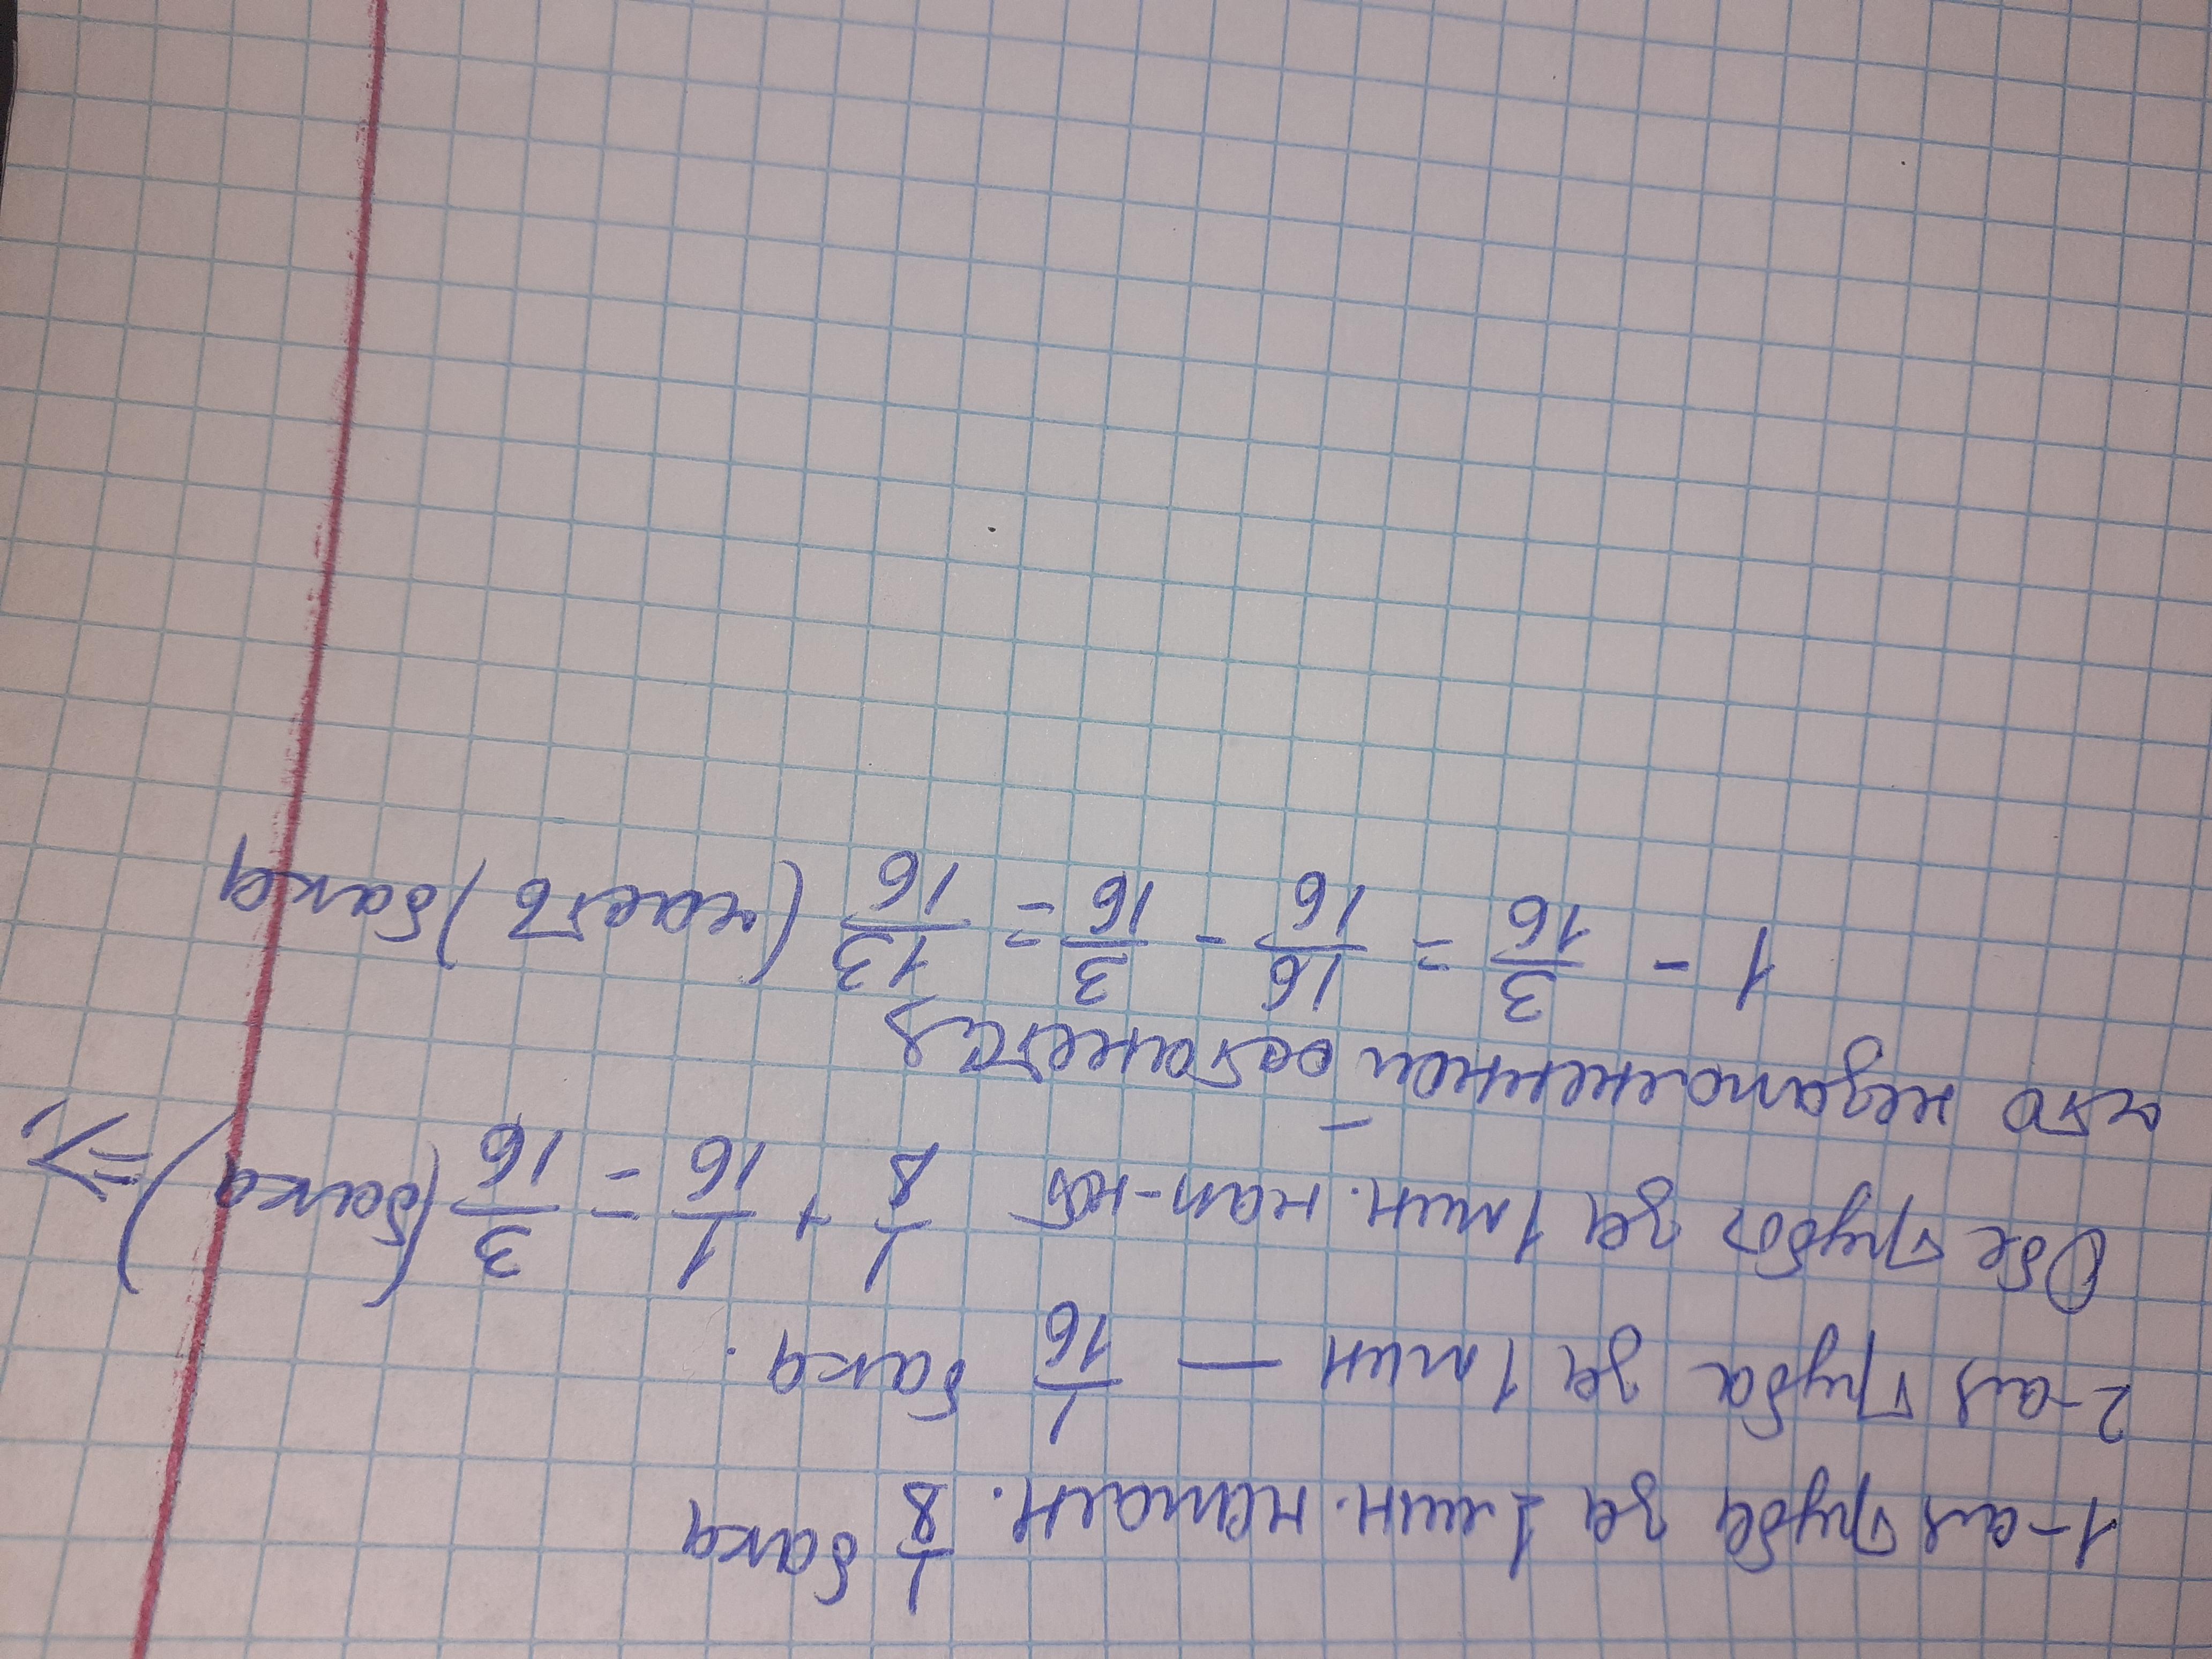 1-ая труба за 1 мин. наполн. 1/8 бака
2-ая труба за 1 мин — 1/16 бака.
Обе трубы за 1 мин. нап-ют 1/8 + 1/16 = 3/16 (бака) =>,
что незаполненной останется
1 - 3/16 = 16/16 - 3/16 = 13/16 (часть) бака